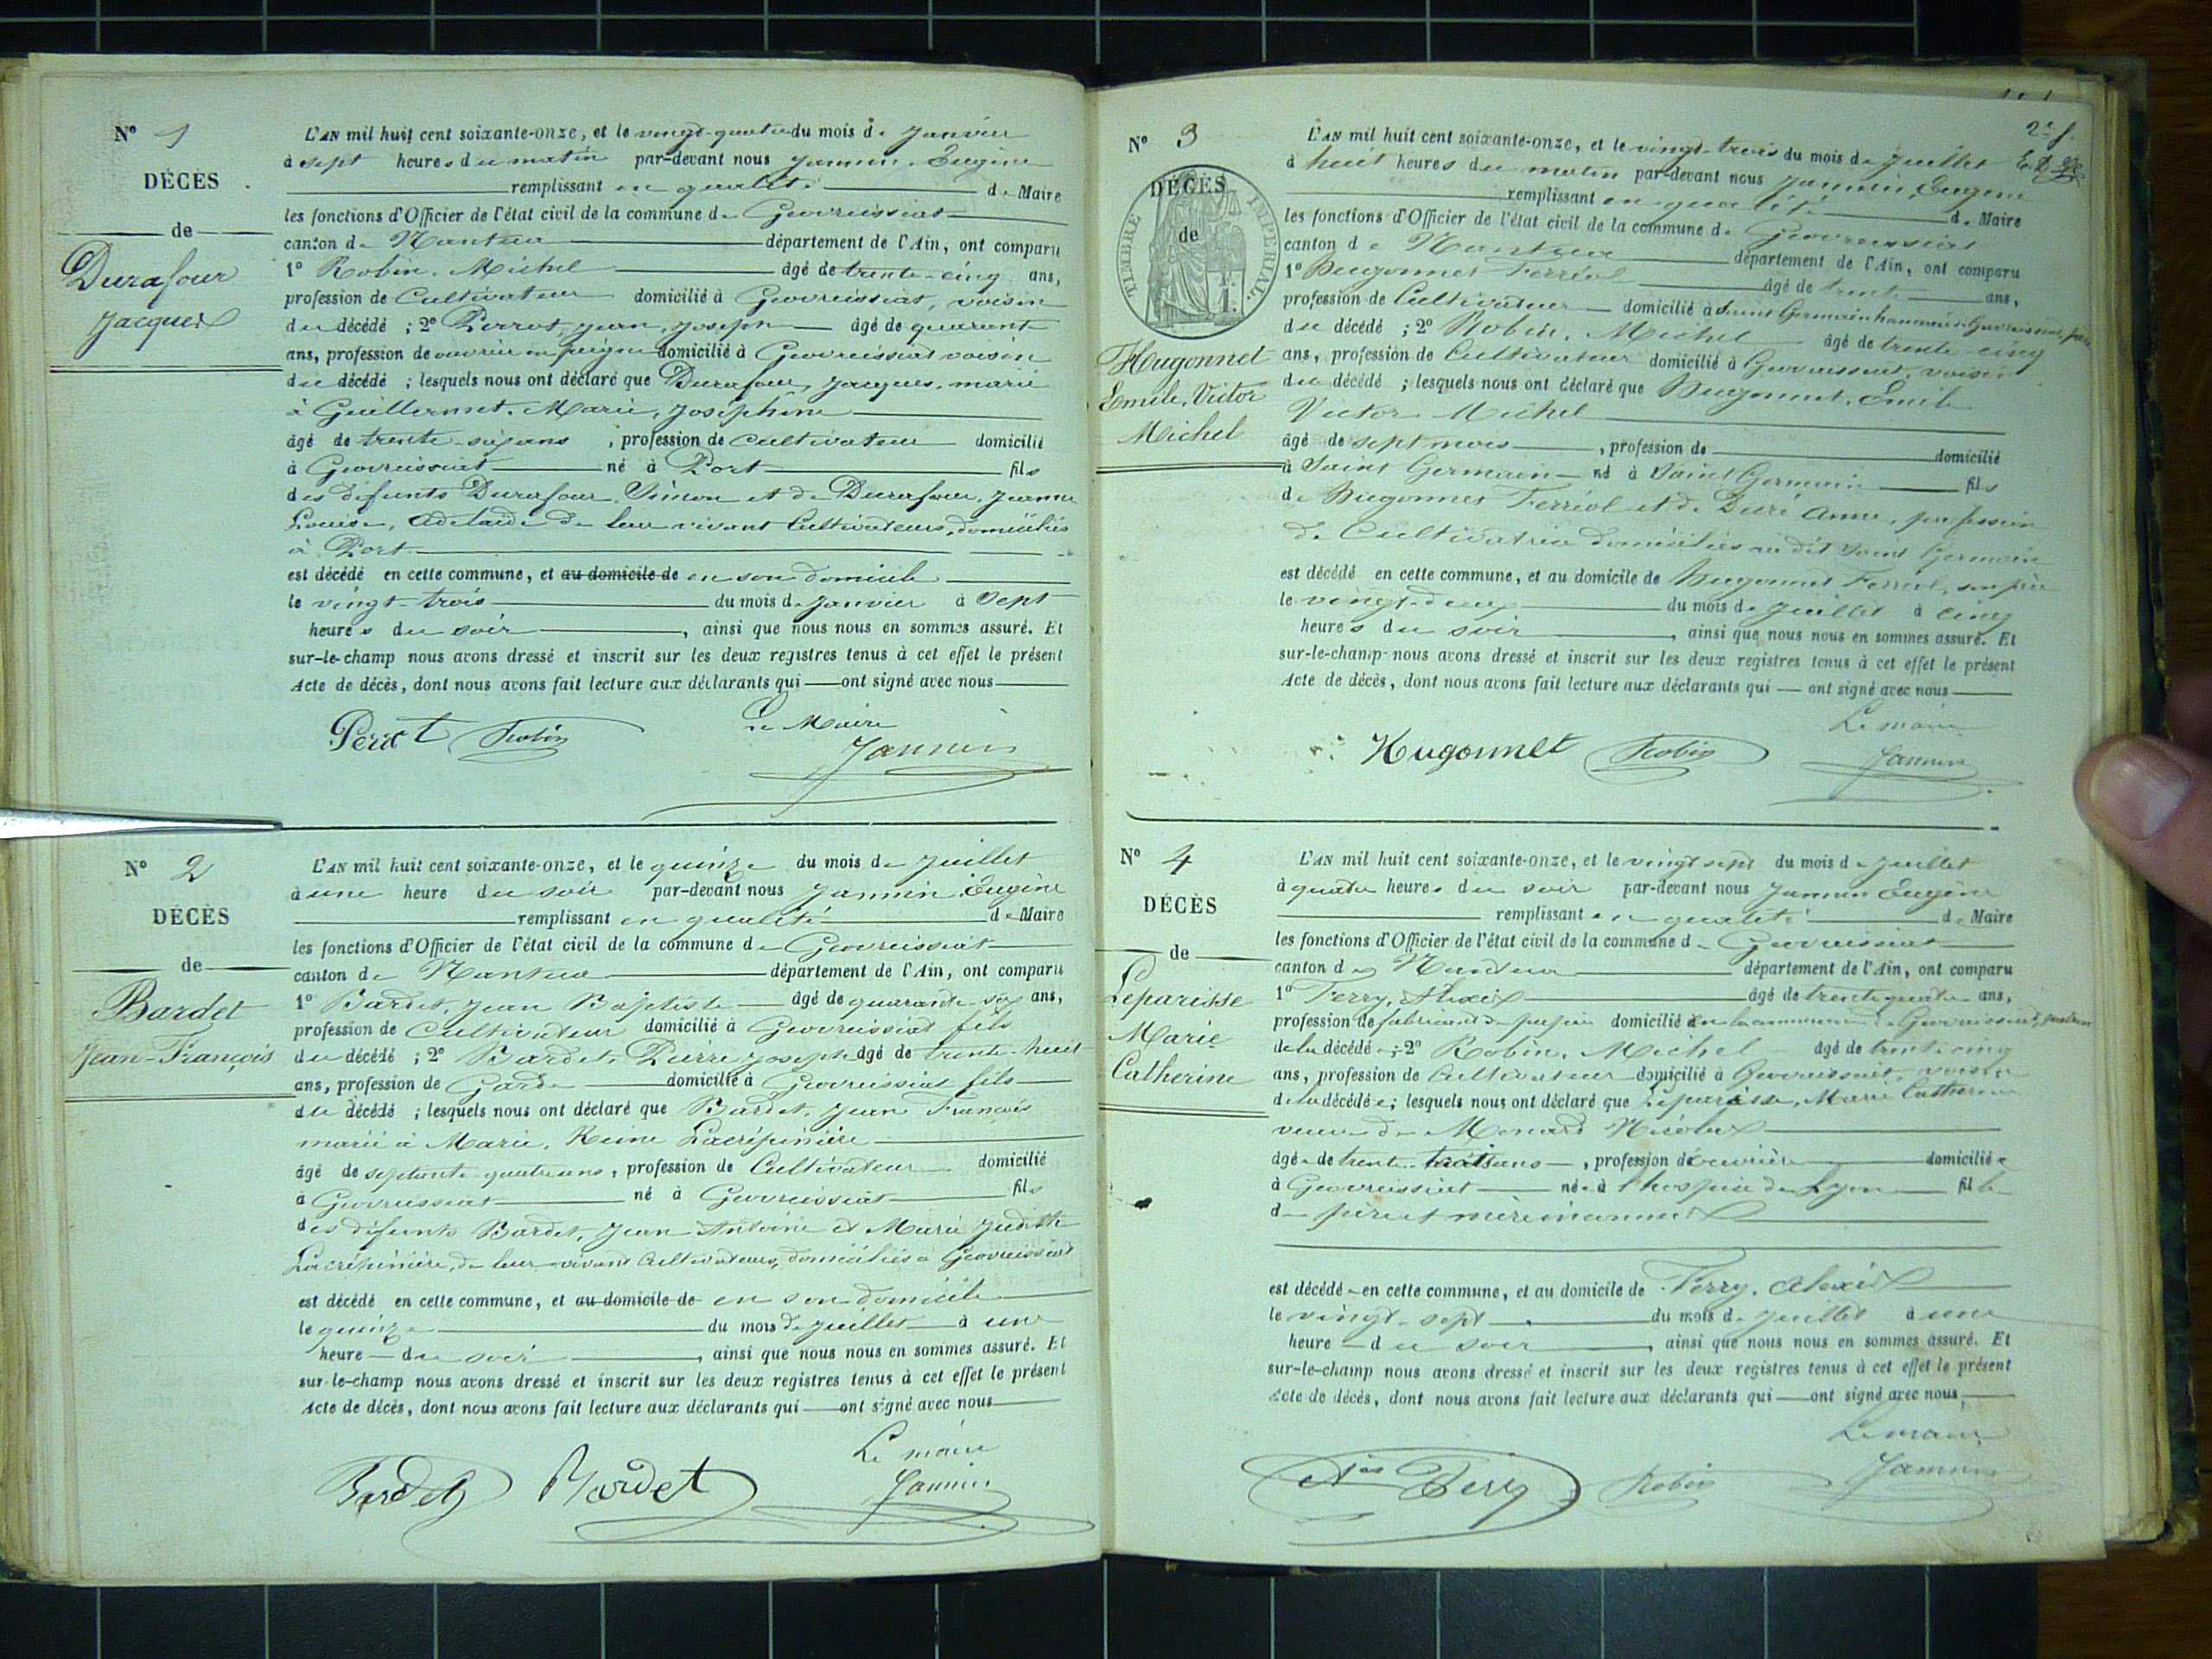 N° 1
DÉCÈS
de
Durafour
Jacques
L'AN mil huit cent soixante-onze, et le vingt-quatre du mois de Janvier
à sept heures du matin par-devant nous Jannin, Eugène
remplissant en qualité de Maire
les fonctions d'Officier de l'état civil de la commune de Géovreissiat
canton de Nantua département de l'Ain, ont comparu
1° Robin, Michel âgé de trente-cinq ans,
profession de Cultivateur domicilié à Géovreissiat, voisin
du décédé ; 2° Perrot, Jean, Joseph âgé de quarante
ans, profession de ouvrier en peigne domicilié à Géovreissiat voisin
du décédé ; lesquels nous ont déclaré que Durafour, Jacques, marié
à Guillermet, Marie, Joséphine
âgé de trente-six ans, profession de Cultivateur domicilié
à Géovreissiat né à Port fils
des défunts Durafour Simon et de Durafour, Jeanne
Louise, Adelaïde de leur vivant Cultivateurs, domiciliés
à Port
est décédé en cette commune, et au domicile de en son domicile
le vingt-trois du mois de Janvier à Sept
heures du soir, ainsi que nous nous en sommes assuré. Et
sur-le-champ nous avons dressé et inscrit sur les deux registres tenus à cet effet le présent
Acte de décès, dont nous avons fait lecture aux déclarants qui ont signé avec nous
Le Maire
Perrot Robin Jannin
N° 2
DÉCÈS
de
Bardet
Jean-François
L'AN mil huit cent soixante-onze, et le quinze du mois de Juillet
à une heure du soir par-devant nous Jannin, Eugène
remplissant en qualité de Maire
les fonctions d'Officier de l'état civil de la commune de Géovreissiat
canton de Nantua département de l'Ain, ont comparu
1° Bardet, Jean Baptiste âgé de quarante-six ans,
profession de Cultivateur domicilié à Géovreissiat fils
du décédé ; 2° Bardet, Pierre Joseph âgé de trente-huit
ans, profession de Garde domicilié à Géovreissiat fils
du décédé ; lesquels nous ont déclaré que Bardet, Jean François
marié à Marie, Reine Lacrépinière
âgé de septante-quatre ans, profession de Cultivateur domicilié
à Géovreissiat né à Géovreissiat fils
des défunts Bardet, Jean Antoine et Marie Judith
Lacrépinière, de leur vivant Cultivateurs, domiciliés à Géovreissiat
est décédé en cette commune, et au domicile de en son domicile
le quinze du mois de Juillet à une
heure du soir, ainsi que nous nous en sommes assuré. Et
sur-le-champ nous avons dressé et inscrit sur les deux registres tenus à cet effet le présent
Acte de décès, dont nous avons fait lecture aux déclarants qui ont signé avec nous
Le maire
Bardet Bardet Jannin
2e f.
N° 3
DÉCÈS
de
TIMBRE IMPÉRIAL
Hugonnet
Emile, Victor
Michel
L'AN mil huit cent soixante-onze, et le vingt-trois du mois de Juillet
à huit heures du matin par-devant nous Jannin, Eugène
remplissant en qualité de Maire
les fonctions d'Officier de l'état civil de la commune de Géovreissiat
canton de Nantua département de l'Ain, ont comparu
1° Hugonnet Ferréol âgé de trente ans,
profession de Cultivateur domicilié à Saint Germain hameau Géovreissiat, père
du décédé ; 2° Robin, Michel âgé de trente-cinq
ans, profession de Cultivateur domicilié à Géovreissiat, voisin
du décédé ; lesquels nous ont déclaré que Hugonnet, Emile
Victor Michel
âgé de sept mois, profession de domicilié
à Saint Germain né à Saint Germain fils
de Hugonnet Ferréol et de Anne, profession
de Cultivatrice domiciliés au dit Saint Germain
est décédé en cette commune, et au domicile de Hugonnet Ferréol, son père
le vingt-deux du mois de Juillet à cinq
heures du soir, ainsi que nous nous en sommes assuré. Et
sur-le-champ nous avons dressé et inscrit sur les deux registres tenus à cet effet le présent
Acte de décès, dont nous avons fait lecture aux déclarants qui ont signé avec nous
Le maire
Hugonnet Robin Jannin
N° 4
DÉCÈS
de
Leparisse
Marie
Catherine
L'AN mil huit cent soixante-onze, et le vingt sept du mois de Juillet
à quatre heures du soir par-devant nous Jannin Eugène
remplissant en qualité de Maire
les fonctions d'Officier de l'état civil de la commune de Géovreissiat
canton de Nantua département de l'Ain, ont comparu
1° Ferry, Alexis âgé de trente quatre ans,
profession de fabricant de papier domicilié en la commune de Géovreissiat, patron
de la décédée ; 2° Robin, Michel âgé de trente cinq
ans, profession de Cultivateur domicilié à Géovreissiat, voisin
de la décédée ; lesquels nous ont déclaré que Leparisse, Marie Catherine
veuve de Menard Nicolas
âgée de trente-trois ans, profession d'ouvrière domiciliée
à Géovreissiat née à l'hospice de Lyon fille
de père et mère inconnus
est décédée en cette commune, et au domicile de Ferry, Alexis
le vingt-sept du mois de Juillet à une
heure du soir, ainsi que nous nous en sommes assuré. Et
sur-le-champ nous avons dressé et inscrit sur les deux registres tenus à cet effet le présent
Acte de décès, dont nous avons fait lecture aux déclarants qui ont signé avec nous
Le maire
Ais Ferry Robin Jannin